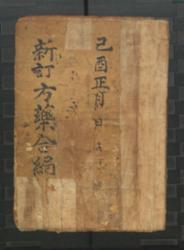 己酉正月 日
新訂方藥合編